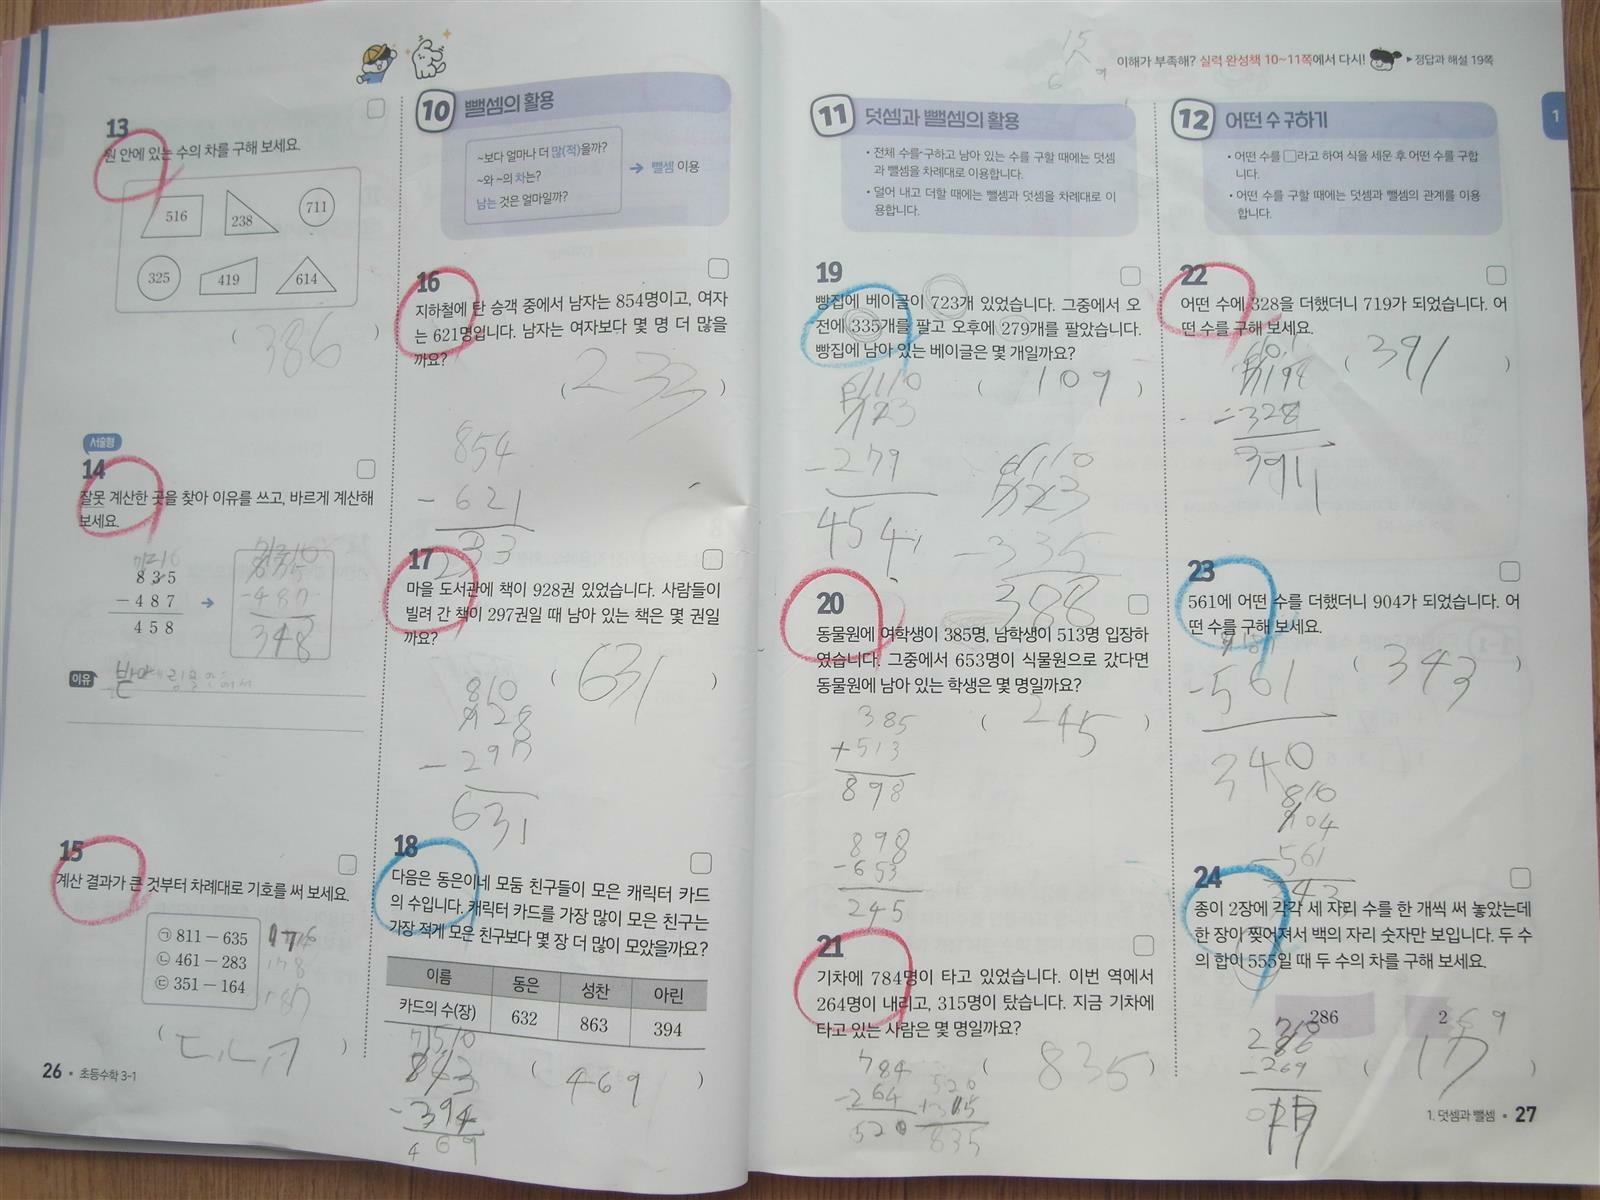 13
원 안에 있는 수의 차를 구해 보세요.
516
238
711
325
419
614
( 386 )
서술형
14
잘못 계산한 곳을 찾아 이유를 쓰고, 바르게 계산해
보세요.
8 3 5
- 4 8 7
4 5 8
→
- 487
348
이유
15
계산 결과가 큰 것부터 차례대로 기호를 써 보세요.
㉠ 811 - 635 176
㉡ 461 - 283 178
㉢ 351 - 164 187
( ㄷㄴㄱ )
26 • 초등수학 3-1
10 뺄셈의 활용
~보다 얼마나 더 많(적)을까?
~와 ~의 차는?
남는 것은 얼마일까?
→ 뺄셈 이용
16
지하철에 탄 승객 중에서 남자는 854명이고, 여자
는 621명입니다. 남자는 여자보다 몇 명 더 많을
까요?
( 233 )
854
- 621
233
17
마을 도서관에 책이 928권 있었습니다. 사람들이
빌려 간 책이 297권일 때 남아 있는 책은 몇 권일
까요?
( 631 )
8 10
928
- 297
631
18
다음은 동은이네 모둠 친구들이 모은 캐릭터 카드
의 수입니다. 캐릭터 카드를 가장 많이 모은 친구는
가장 적게 모은 친구보다 몇 장 더 많이 모았을까요?
이름 동은 성찬 아린
카드의 수(장) 632 863 394
7 15 10
863
- 394
469
( 469 )
15
6 9
이해가 부족해? 실력 완성책 10~11쪽에서 다시! ▸정답과 해설 19쪽
1
11 덧셈과 뺄셈의 활용
• 전체 수를 구하고 남아 있는 수를 구할 때에는 덧셈
과 뺄셈을 차례대로 이용합니다.
• 덜어 내고 더할 때에는 뺄셈과 덧셈을 차례대로 이
용합니다.
19
빵집에 베이글이 723개 있었습니다. 그중에서 오
전에 335개를 팔고 오후에 279개를 팔았습니다.
빵집에 남아 있는 베이글은 몇 개일까요?
( 109 )
6 11 10
723
- 279
454
6 11 10
723
- 335
388
20
동물원에 여학생이 385명, 남학생이 513명 입장하
였습니다. 그중에서 653명이 식물원으로 갔다면
동물원에 남아 있는 학생은 몇 명일까요?
( 245 )
385
+ 513
898
898
- 653
245
21
기차에 784명이 타고 있었습니다. 이번 역에서
264명이 내리고, 315명이 탔습니다. 지금 기차에
타고 있는 사람은 몇 명일까요?
( 835 )
784
- 264
520
520
+ 315
835
12 어떤 수 구하기
• 어떤 수를 □라고 하여 식을 세운 후 어떤 수를 구합
니다.
• 어떤 수를 구할 때에는 덧셈과 뺄셈의 관계를 이용
합니다.
22
어떤 수에 328을 더했더니 719가 되었습니다. 어
떤 수를 구해 보세요.
( 391 )
- 328
391
23
561에 어떤 수를 더했더니 904가 되었습니다. 어
떤 수를 구해 보세요.
( 343 )
- 561
340
8 10
904
- 561
343
24
종이 2장에 각각 세 자리 수를 한 개씩 써 놓았는데
한 장이 찢어져서 백의 자리 숫자만 보입니다. 두 수
의 합이 555일 때 두 수의 차를 구해 보세요.
286
269
( 17 )
286
- 269
017
1. 덧셈과 뺄셈 • 27